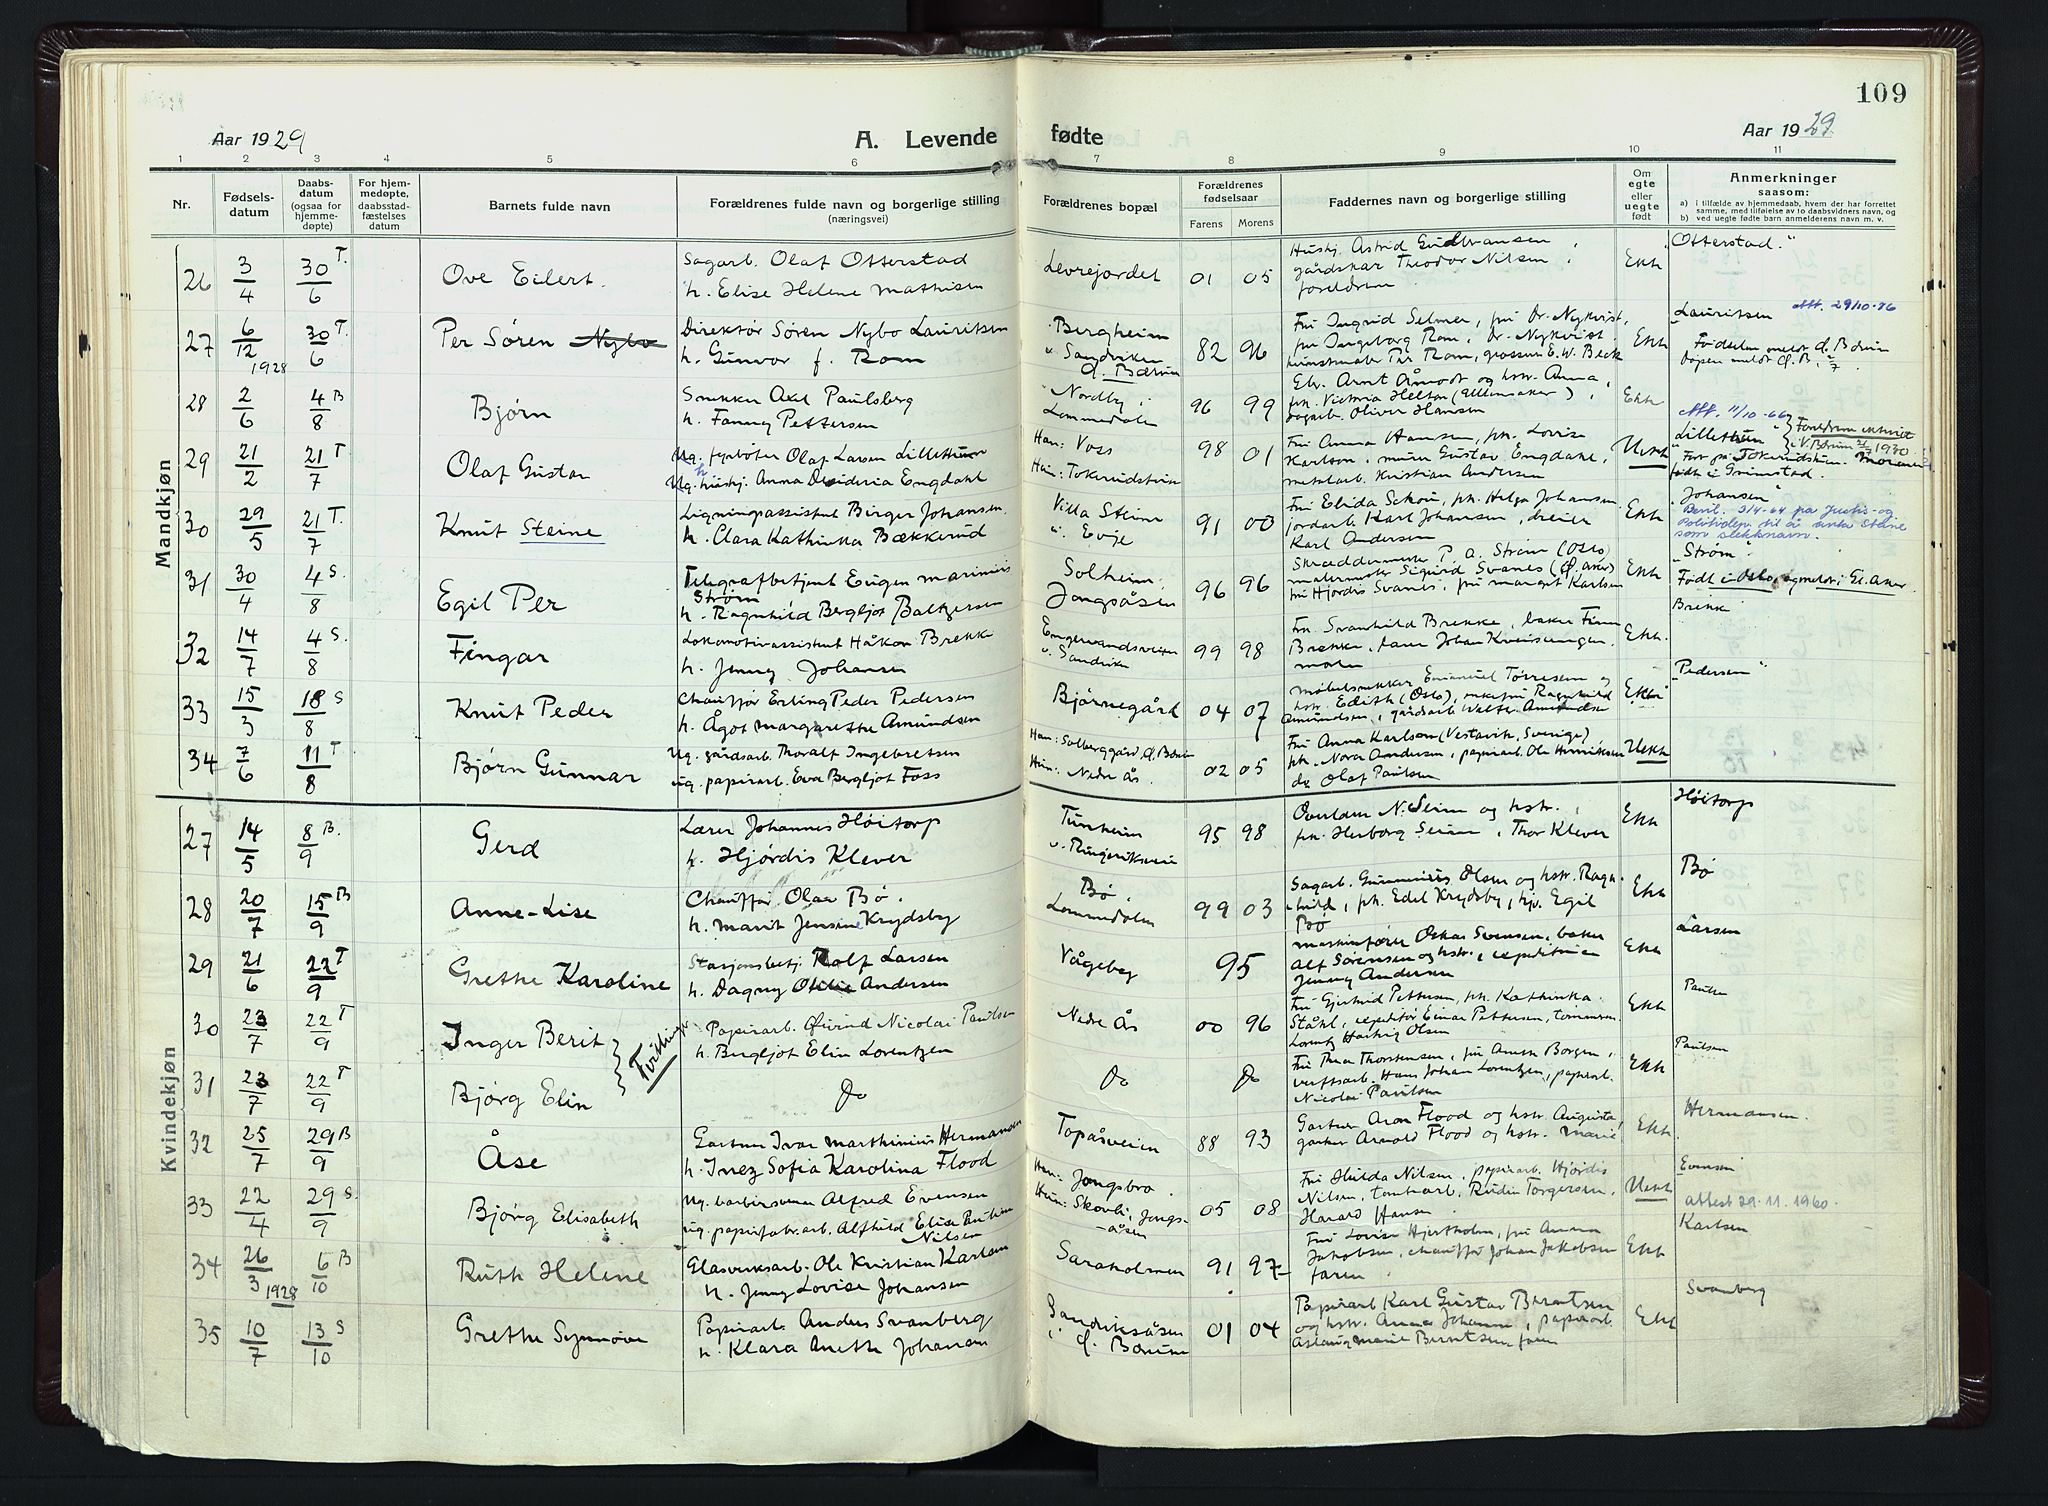 109
Aar 1929
A. Levende fødte
Aar 1929
1 2 3 4 5 6 7 8 9 10 11
Nr.
Fødsels-
datum
Daabs-
datum
(ogsaa for
hjemme-
døpte)
For hjem-
medøpte,
daabsstad-
fæstelses
datum
Barnets fulde navn
Forældrenes fulde navn og borgerlige stilling
(næringsvei)
Forældrenes bopæl
Forældrenes
fødselsaar
Farens Morens
Faddernes navn og borgerlige stilling
Om
egte
eller
uegte
født
Anmerkninger
saasom:
a) i tilfælde av hjemmedaab, hvem der har forrettet
samme, med tilføielse av to daabsvidners navn, og
b) ved uegte fødte barn anmelderens navn m. v.
Mandkjøn
26 3/4 30/6 T.
Ove Eilert.
Sagarb. Olaf Otterstad
h. Elise Helene Mathisen
Levrejordet
01 05
Hushj. Astrid Gudbransen,
gårdskar Theodor Nilsen,
foreldrene
Ekte
"Otterstad."
27 6/12 1928 30/6 T.
Per Søren Nybo
Direktør Søren Nybo Lauritsen
h. Gunvor f. Rom
Bergheim
v. Sandviken
Ø. Bærum
82 96
Fru Ingrid Selmer, fru Dr. Nykvist,
fru Ingeborg Rom, Dr. Nykvist,
kunstmaler Per Rom, grosserer E. W. Beck
Ekte
Lauritsen att. 29/10-86
Fødselen meldt Ø. Bærum
28 2/6 4/8 B
Bjørn
Snekker Axel Paulsberg
h. Fanny Pettersen
Nordby i
Lommedalen
96 99
Elv. Arnt Åmodt og hstr. Anna,
frk. Victoria Helton (Ullensaker),
sagarb. Oliver Hansen
Ekte
29 21/2 21/7 T
Olaf Gustav
Ug. fyrbøter Olaf Larsen Lillethun
Ug. hushj. Anna Desideria Engdahl
Han: Voss
Hun: Tokerudstuen
98 01
Fru Anna Hansen, frk. Lovise
Karlson, murer Gustav Engdahl,
metalarb. Kristian Andersen
Uekte
Att. 11/10-66
"Lillethun" Foreldrene interviet
i V. Bærum 1930.
Født på Tokerudstuen. Moren
født i Grimstad.
30 29/5 21/7 T.
Knut Steine
Ligningsassistent Birger Johansen
h. Clara Kathinka Bækkerud
Villa Steine
v. Evje
91 00
Fru Elida Schou, frk. Helga Johansen,
jordarb. Karl Johansen, dreier
Karl Andersen
Ekte
"Johansen"
Bevil. 3/4-64 fra Justis- og
Politidep. til å anta Steine
som slektsnavn.
31 30/4 4/8 S.
Egil Per
Telegrafbetjent Eugen Marinius
Strøm
h. Ragnhild Bergljot Baltzersen
Solheim
Jongsåsen
96 96
Skreddermester P. A. Strøm (Oslo)
malermester Sigurd Svanes (Ø. Aker)
fru Hjørdis Svanes, fru Margit Karlsen
Ekte
"Strøm"
Født i Oslo, og meldt i Gl. Aker
32 14/7 4/8 S.
Fingar
Lokomotivassistent Håkon Brekke
h. Jenny Johansen
Engervandsveien
v. Sandviken
99 98
Frk. Svanhild Brekke, baker Finn
Brekke,
moren
Ekte.
Brekke
33 15/3 18/8 S
Knut Peder
Chauffør Erling Peder Pedersen
h. Ågot Margarethe Amundsen
Bjørnegård
04 07
Møbelsnekker Emanuel Torresen og
hstr. Edith (Oslo), enkefru Ragnhild
Amundsen, gårdsarb. Walter Amundsen
Ekte
"Pedersen"
34 7/6 11/8 T
Bjørn Gunnar
Ug. gårdsarb. Thoralf Ingebretsen
ug. papirarb. Eva Bergljot Foss
Han: Solberggård, Ø. Bærum
Hun: Nedre Ås.
02 05
Fru Anna Karlson (Vestavik, Sverige)
frk. Nora Andersen, papirarb. Ole Henriksen
do Olaf Paulsen
Uekte
Kvindekjøn
27 14/5 8/9 B.
Gerd
Lærer Johannes Høitorp
h. Hjørdis Klever
Tunheim
v. Ringeriksveien
95 98
Overlærer N. Seim og hstr.,
frk. Herborg Seim, Thor Klever
Ekte
Høitorp
28 20/7 15/9 B
Anne-Lise
Chauffør Olav Bø.
h. Marit Jensine Krydsby
Bø,
Lommedalen
99 03
Sagarb. Gunnerius Olsen og hstr. Ragn-
hild, frk. Edel Krydsby, hj. Egil
Bø
Ekte
Bø
29 21/6 22/9 T
Grethe Karoline
Stasjonsbetj. Rolf Larsen
h. Dagny Otilie Andersen
Vågebey
95
Maskinfører Oskar Svensen, baker
Alf Sørensen og hstr., expeditrice
Jenny Andersen
Ekte
Larsen
30 23/7 22/9 T
Inger Berit
Tvillinger
Papirarb. Øivind Nicolai Paulsen
h. Bergljot Elin Lorentzen
Nedre Ås
00 96
Fru Gjertrud Pettersen, frk. Kathinka
Ståhl, expeditør Einar Pettersen, tømmerm.
Lorentz Hartvig Olsen
Ekte
Paulsen
31 23/7 22/9 T
Bjørg Elin
Do
Do
Do
Fru Thea Thorstensen, fru Anette Borgen,
verftsarb. Hans Johan Lorentzen, papirarb.
Nicolai Paulsen
Ekte
Paulsen
32 25/7 29/9 B
Åse
Gartner Ivar Marthinius Hermansen
h. Inez Sofia Karolina Flood
Topåsveien
88 93
Gartner Aron Flood og hstr. Augusta,
gartner Arnold Flood og hstr. Marie
Ekte.
Hermansen.
33 22/4 29/9 S.
Bjørg Elisabeth
Ug. barbersvenn Alfred Evensen
ug. papirfabr.arb. Alfhild Elise Pauline
Nilsen
Han: Jongsbro.
Hun: Skovli, Jongs-
åsen
05 08
Fru Hulda Nilsen, papirarb. Hjørdis
Nilsen, tomtearb. Rudin Torgersen,
Harald Hansen
Uekte
Evensen
attest 29.11.1960.
34 26/3 1928 6/10 B
Ruth Helene
Glasverksarb. Ole Kristian Karlsen
h. Jenny Lovise Johansen
Saraholmen
91 97
Fru Lovise Hjertholm, fru Anna
Jakobsen, chauffør Johan Jakobsen
faren
Ekte
Karlsen
35 10/7 13/10 S
Grethe Synnøve
Papirarb. Anders Svanberg
h. Klara Anette Johansen
Sandviksåsen
i Ø. Bærum
01 04
Papirarb. Karl Gustav Berntsen
og hstr. Anna Johanne, papirarb.
Aslaug Marie Berntsen, faren
Ekte
Svanberg